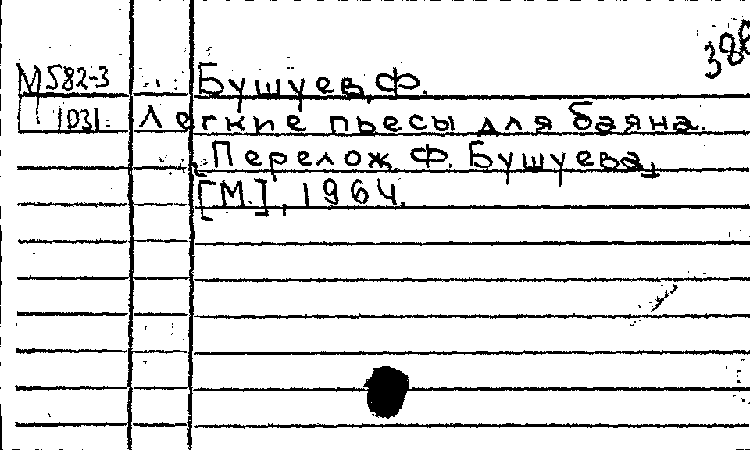 М582-3 Бушуев, Ф.
1031 Легкие пьесы для баяна.
[Перелож. Ф. Бушуева]
[М.], 1964.